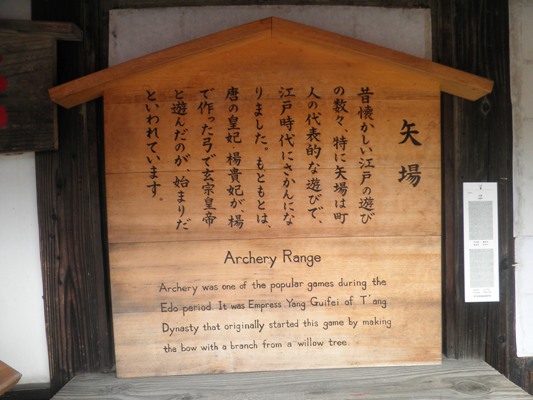 矢場
昔懐かしい江戸の遊び
の数々、特に矢場は町
人の代表的な遊びで、
江戸時代にさかんにな
りました。もともとは、
唐の皇妃・楊貴妃が、楊
で作った弓で玄宗皇帝
と遊んだのが、始まりだ
といわれています。
Archery Range
Archery was one of the popular games during the
Edo period. It was Empress Yang Guifei of T'ang
Dynasty that originally started this game by making
the bow with a branch from a willow tree.